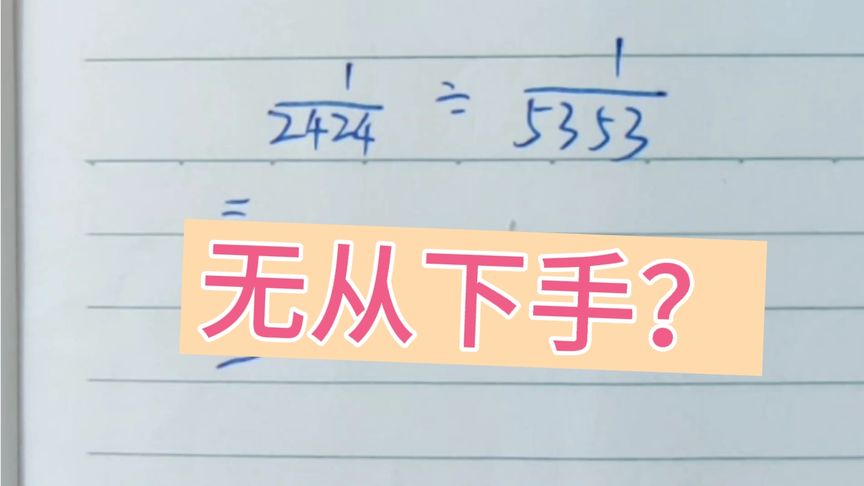 1/2424 ÷ 1/5353
=
无从下手?